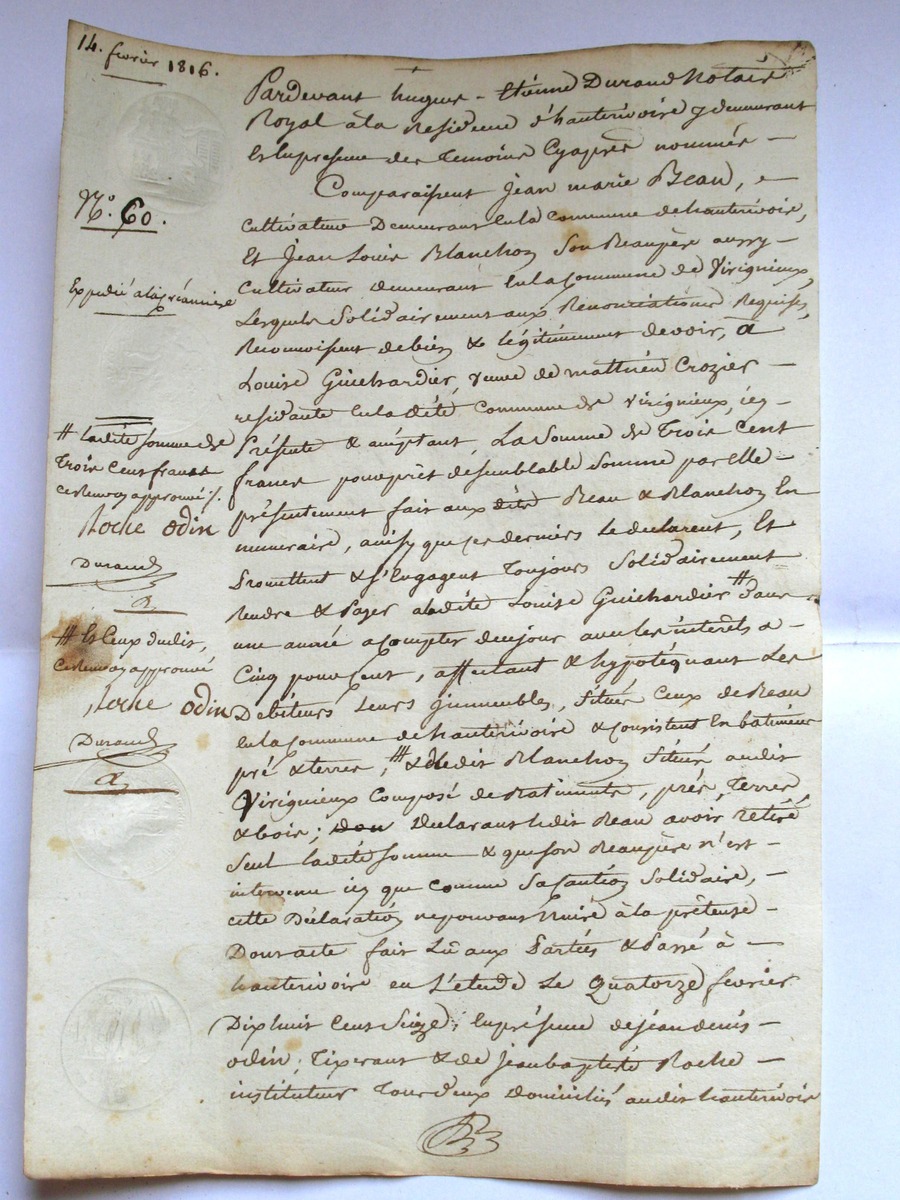 14. fevrier 1816.
N.º 60.
Expédié à la préannière
# ladite somme de
trois cent francs
ce renvoy approuvé /.
Roche odin
Durand
# Et Ceux dudit,
ce renvoy approuvé
Roche odin
Durand
Pardevant hugues-Etienne Durand Notaire
Royal à la Residence d'hauterivoire y demeurant
Et en presence des Temoins Cyaprès nommés —
Comparaissent jean marie Beau,
cultivateur Demeurant en la Commune de hauterivoire,
Et Jean Louis Blanchon Son Beaupère aussy —
Cultivateur demeurant en la Commune de Virignieux,
Lesquels Solidairement aux Renonciations Requises,
Reconnoissent debien & légitimement devoir, à
Louise Guichardier, veuve de mathieu Crozier —
residante en la dite Commune de Virignieux, icy
Présente & acceptant, La Somme de Trois Cent
francs pour prêt de semblable Somme par elle —
présentement fait aux dits Beau & Blanchon En
numeraire, ainsy que ces derniers Le declarent, Et
Promettent & s'Engagent Toujours Solidairement
Rendre & Payer a ladite Louise Guichardier # dans
une année a Compter de ce jour avec les interêts a
Cinq pour Cent, affectant & hypotéquant Les
Débiteurs Leurs immeubles, Situés Ceux de Beau
en la Commune de hauterivoire & Consistent En batiments
pré & terres, # & dedit Blanchon Situés audit
Virignieux Composé de Batiments, prés, Terres
& bois; Declarant ledit Beau avoir Retiré
Seul ladite Somme & que son Beaupère n'est —
intervenu icy que comme Sa Caution Solidaire, —
cette Déclaration ne pouvant Nuire à la prêteuse —
Dont acte fait Lû aux Parties & Passé à —
hauterivoire en L'etude Le Quatorze fevrier
Dix huit Cent Seize; En presence de jean denis —
odin, Tixerant & de jean baptiste Roche —
instituteur Tous deux Domiciliés audit hauterivoire